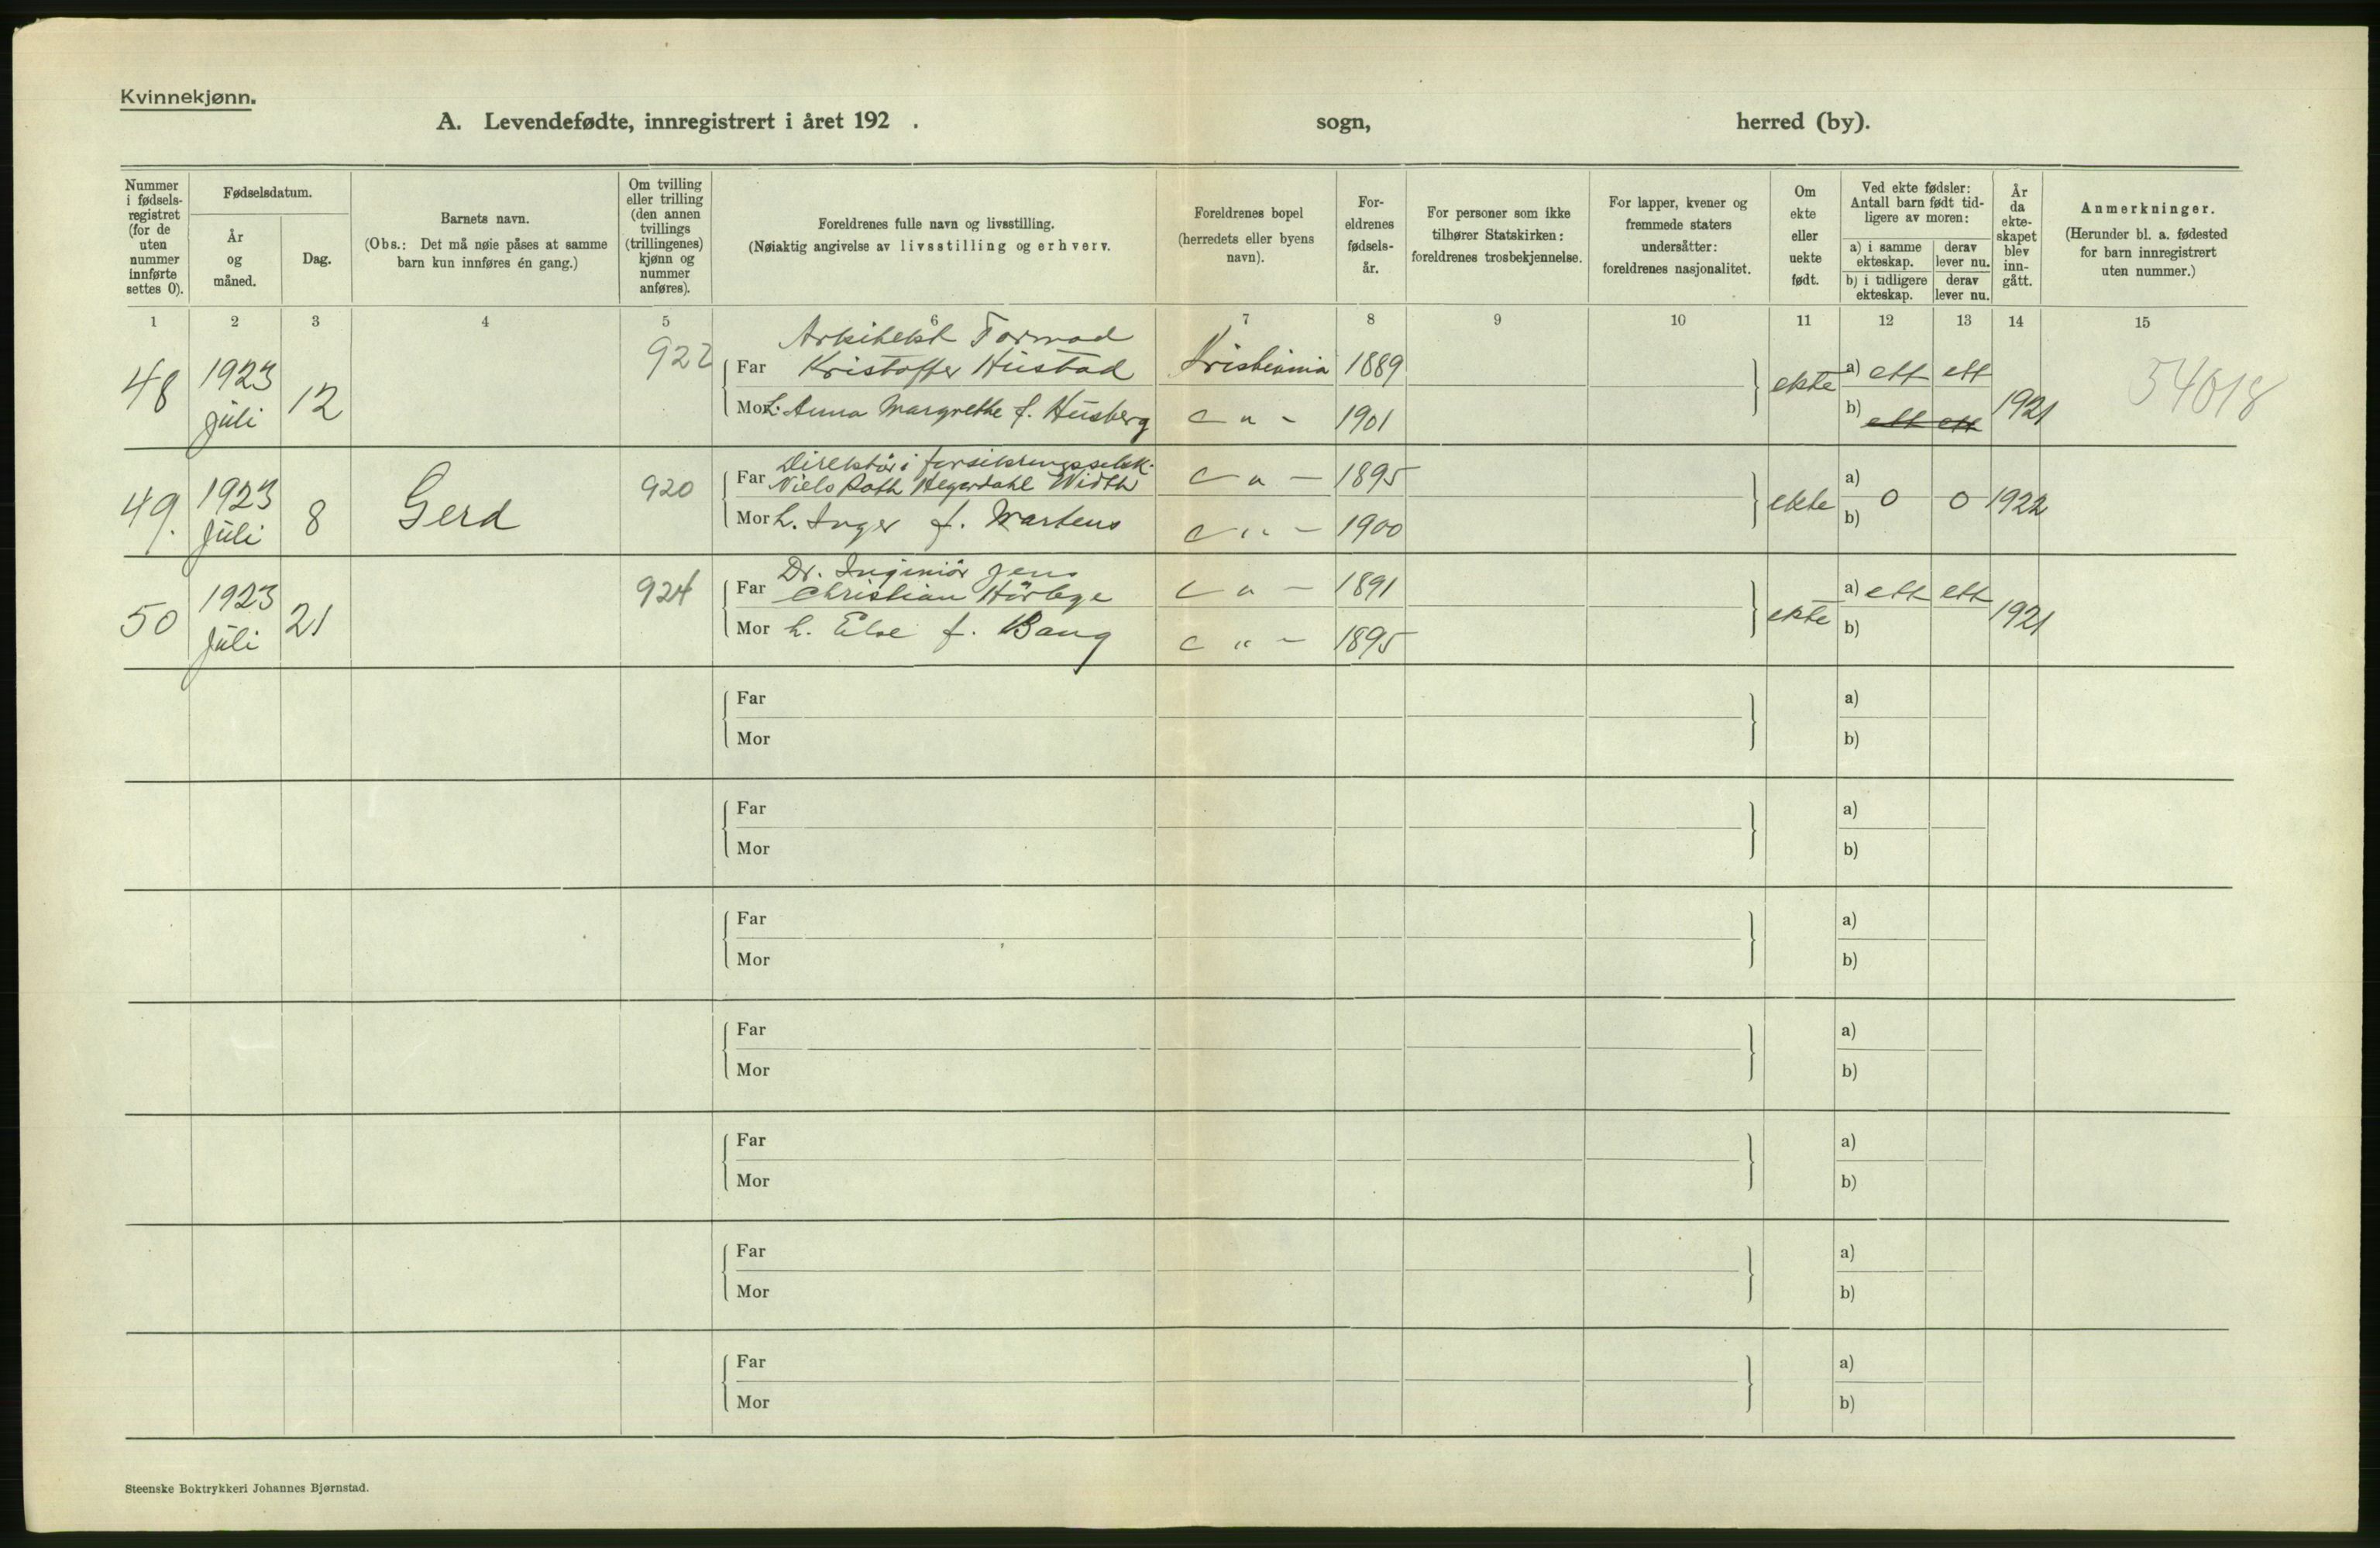 Kvinnekjønn.
A. Levendefødte, innregistrert i året 192 . sogn, herred (by).
Nummer i fødsels-registret (for de uten nummer innførte settes 0).
Fødselsdatum.
År og måned.
Dag.
Barnets navn.
(Obs.: Det må nøie påses at samme barn kun innføres én gang.)
Om tvilling eller trilling (den annen tvillings (trillingenes) kjønn og nummer anføres).
Foreldrenes fulle navn og livsstilling.
(Nøiaktig angivelse av livsstilling og erhverv.
Foreldrenes bopel (herredets eller byens navn).
For-eldrenes fødsels-år.
For personer som ikke tilhører Statskirken: foreldrenes trosbekjennelse.
For lapper, kvener og fremmede staters undersåtter: foreldrenes nasjonalitet.
Om ekte eller uekte født.
Ved ekte fødsler: Antall barn født tid-ligere av moren:
a) i samme ekteskap. derav lever nu.
b) i tidligere ekteskap. derav lever nu.
År da ekte-skapet blev inn-gått.
Anmerkninger.
(Herunder bl. a. fødested for barn innregistrert uten nummer.)
1 2 3 4 5 6 7 8 9 10 11 12 13 14 15
Arkitekt Tormod
48 1923 Juli 12 922 Far Kristoffer Hustad Kristiania 1889 ekte a) ett ett 1921 54018
Mor h. Anna Margrethe f. Husberg " 1901 b) ett ett
Direktör i forsikringsselsk.
49. 1923 Juli 8 Gerd 920 Far Niels Roth Hegerdahl Width " 1895 ekte a) 0 0 1922
Mor h. Inger f. Martens " 1900 b)
Dr. Ingeniör Jens
50 1923 Juli 21 924 Far Christian Hörbye " 1891 ekte a) ett ett 1921
Mor h. Else f. Bang " 1895 b)
Far a)
Mor b)
Far a)
Mor b)
Far a)
Mor b)
Far a)
Mor b)
Far a)
Mor b)
Far a)
Mor b)
Far a)
Mor b)
Steenske Boktrykkeri Johannes Bjørnstad.